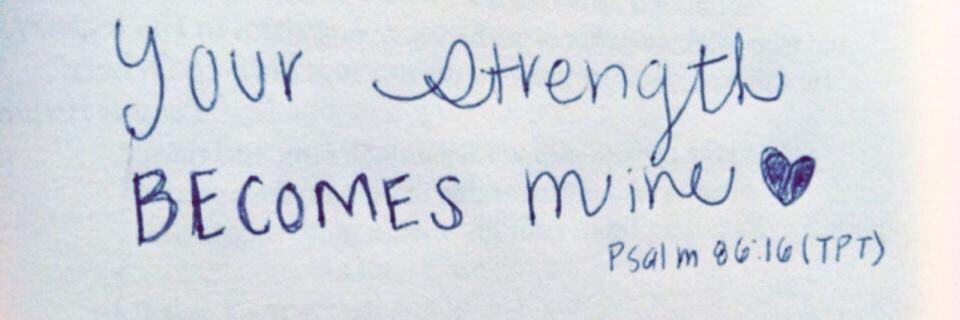 Your Strength
BECOMES mine ♥
Psalm 86:16 (TPT)